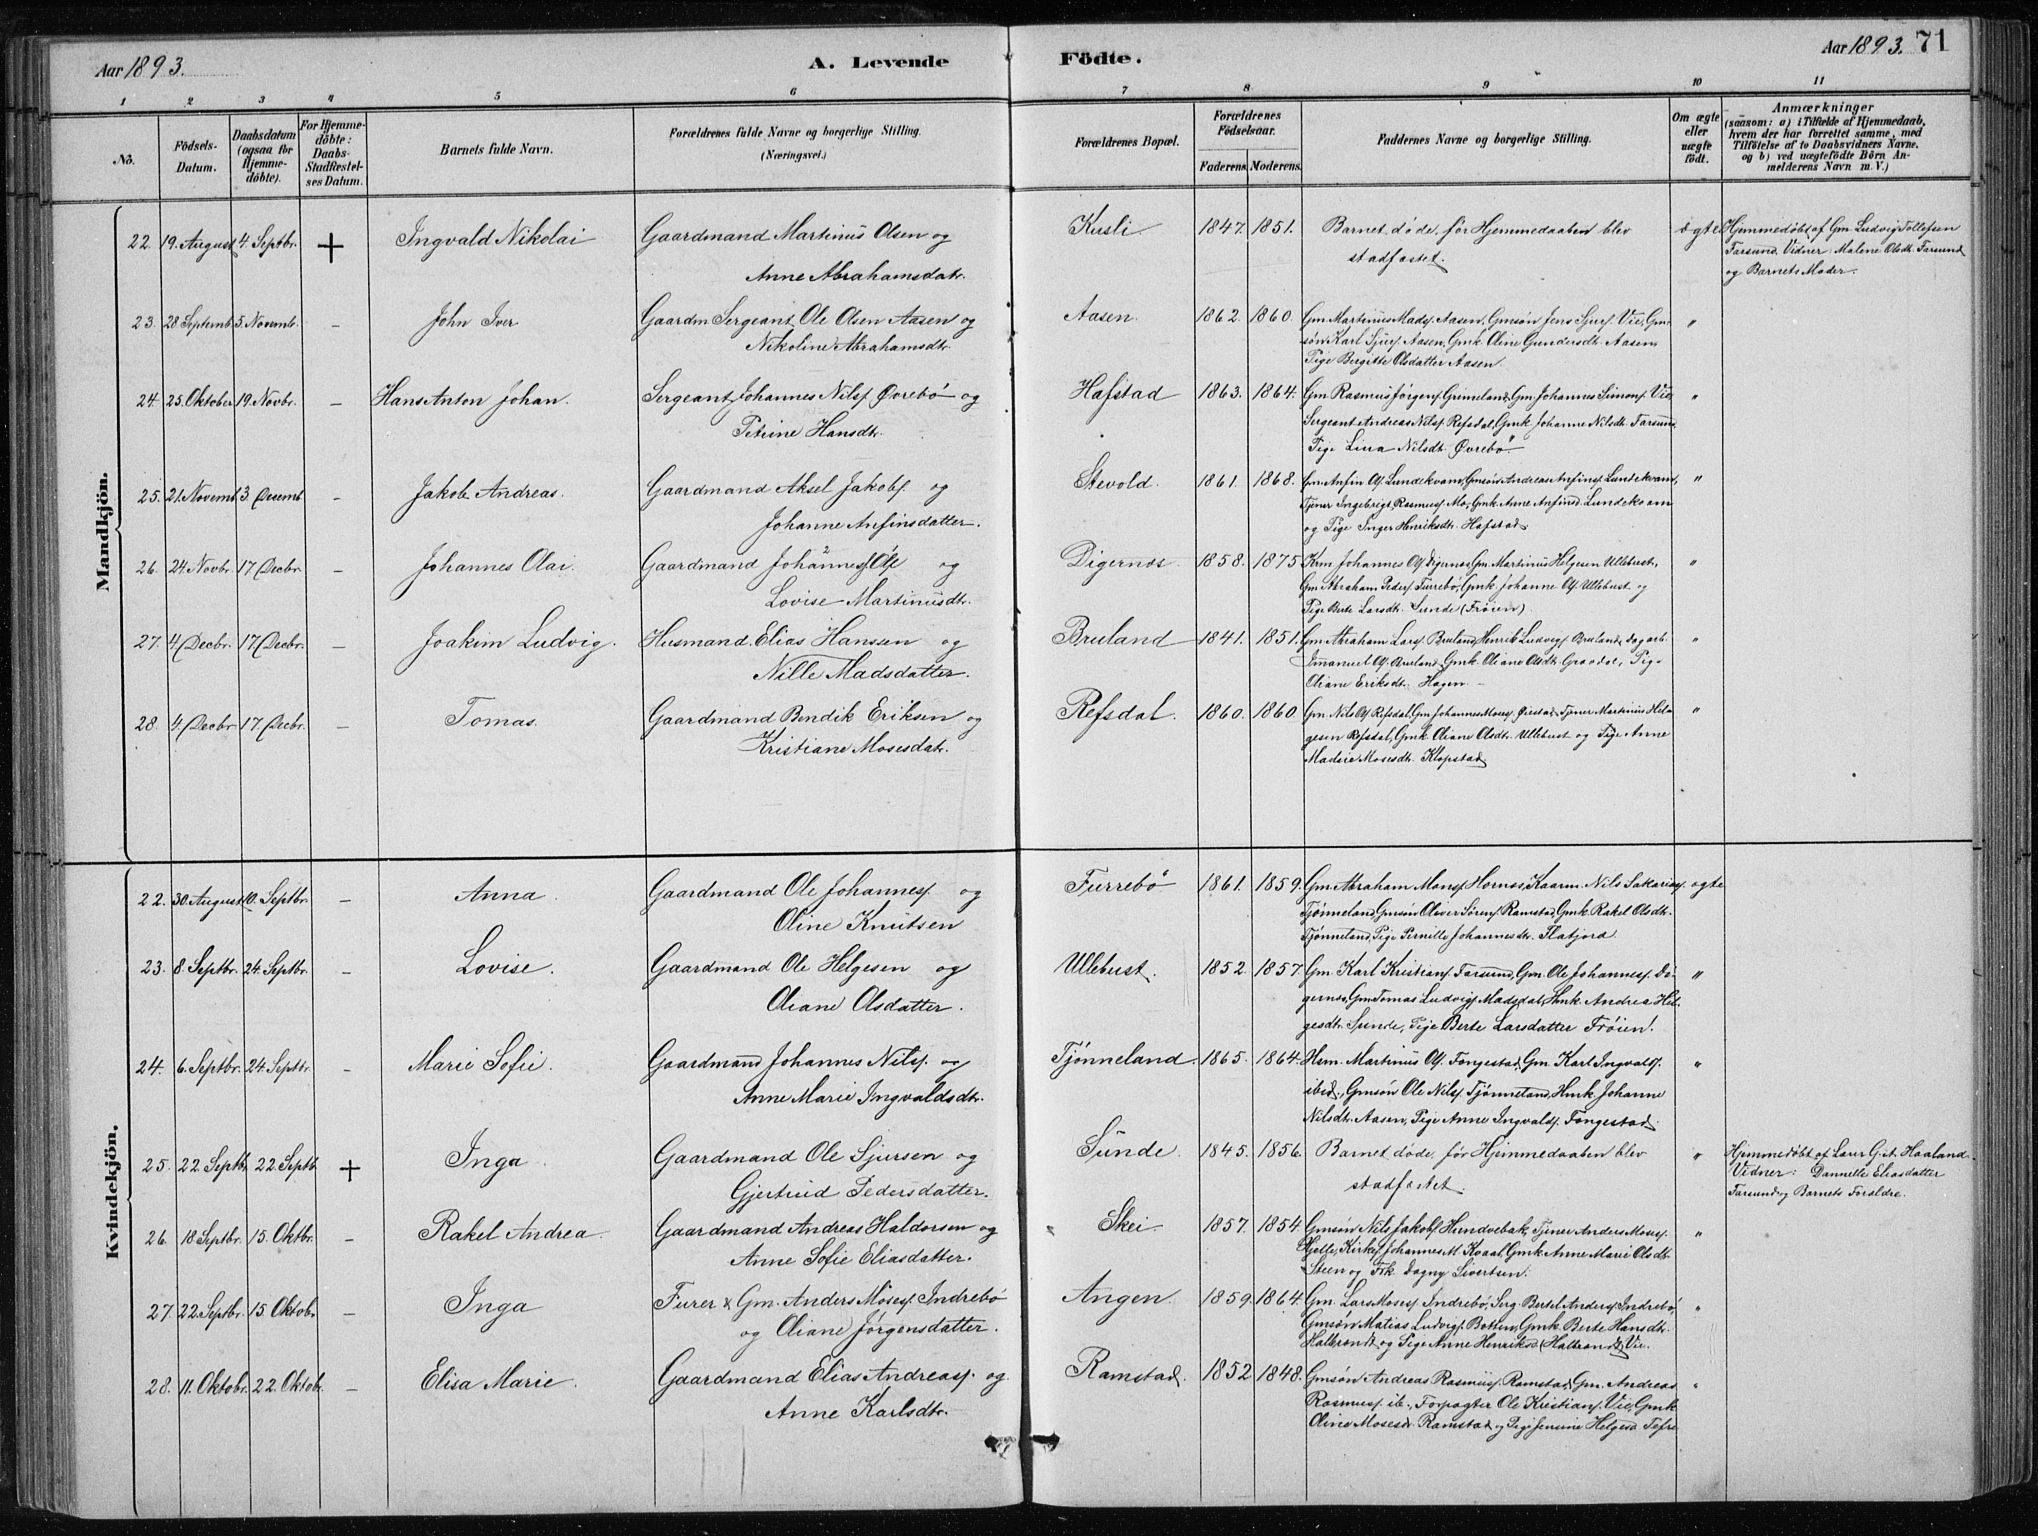 Aar 1893.
A. Levende Födte.
Aar 1893. 71
1 2 3 4 5 6 7 8 9 10 11
No.
Födsels-Datum.
Daabsdatum (ogsaa for Hjemme-döbte).
For Hjemme-döbte: Daabs-Stadfæstel-ses Datum.
Barnets fulde Navn.
Forældrenes fulde Navne og borgerlige Stilling.
(Næringsvei.)
Forældrenes Bopæl.
Forældrenes Födselsaar.
Faderens. Moderens.
Faddernes Navne og borgerlige Stilling.
Om ægte eller uægte födt.
Anmærkninger
(saasom: a) i Tilfælde af Hjemmedaab,
hvem der har forrettet samme, med
Tilföielse af to Daabsvidners Navne,
og b) ved uægtefödte Börn An-
melderens Navn m. V.)
Mandkjön.
22. 19. August 4. Septbr. + Ingvald Nikolai Gaardmand Martinus Olsen og Kusli 1847. 1851. Barnet døde, før Hjemmedaaben blev ægte Hjemmedøbt af Gm. Ludvig Tollefsen
Anne Abrahamsdatr. stadfæstet. Farsund. Vidner: Malene Olsdt. Farsund
og Barnets Moder.
23. 28. Septemb. 5. Novemb. – John Iver Gaardm. Sergeant Ole Olsen Aasen og Aasen. 1862. 1860. Gm. Martinus Mads. Aasen, Gmsøn Jens Sjurs. Vie, Gm- "
Nikoline Abrahamsdtr. søn Karl Sjurs. Aasen, Gmk. Oline Gundersdt. Aasen,
Pige Birgitte Olsdatter Aasen.
24. 25. Oktober 19. Novbr. – Hans Anton Johan. Sergeant Johannes Nils. Øvrebö og Hafstad 1863. 1864. Gm. Rasmus Jørgens. Grimeland, Gm. Johannes Simons. Vie "
Petrine Hansdt. Sergeant Andreas Nils. Refsdal, Gmk. Johanne Nilsdt. Farsund,
Pige Lina Nilsdt. Øvrebö.
25. 21. Novemb. 3. Decemb. – Jakob Andreas. Gaardmand Aksel Jakobs. og Stevold. 1861. 1868. Gm. Anfin Ols. Lundekvam, Gmsøn Andreas Anfins. Lundekvam, "
Johanne Anfinsdatter. Tjener Ingebrigt Rasmus. Mo, Gmk. Anne Anfinsd. Lundekvam
og Pige Inger Henriksdt. Hafstad.
26. 24. Novbr. 17. Decbr. – Johannes Olai. Gaardmand Johannes Ole og Digernes. 1858. 1875 Krm. Johannes Ols. Digernes, Gm. Martinus Helgesen Ullebust, "
Lovise Martinusdt. Gm. Abraham Peders. Furrebø, Gmk. Johanne Ols. Ullebust og
Pige Berte Larsdt. Sunde (Frøien).
27. 4. Decbr. 17. Decbr. – Joakim Ludvig. Husmand. Elias Hansen og Bruland 1841. 1851. Gm. Abraham Lars. Bruland, Henrik Ludvigs. Bruland, dagarb. "
Nille Madsdatter. Imanuel Ols. Bruland, Gmk. Oliane Olsdt. Graadal, Pige
Oliane Eriksdt. Hagen.
28. 4. Decbr. 17. Decbr. – Tomas. Gaardmand Bendik Eriksen og Refsdal. 1860. 1860 Gm. Nils Ols. Refsdal, Gm. Johannes Moses. Øiestad, Tjener Martinus Hel- "
Kristiane Mosesdatr. gesen Refsdal, Gmk. Oliane Olsdt. Ullebust og Pige Anne
Mosesdt. Klopstad.
Kvindekjön.
22. 30. August 10. Septbr. – Anna. Gaardmand Ole Johannes. og Furrebö 1861. 1859. Gm. Abraham Mons. Hornes, Kaarm. Nils Sakarias. ægte
Oline Knutsen Tjønneland, Gmsøn Oliver Sørens. Ramstad, Gmk. Rakel Olsdt.
Tjønneland, Pige Pernille Johannesdtr. Flatjord
23. 8. Septbr. 24. Septbr. – Lovise. Gaardmand Ole Helgesen og Ullebust. 1852. 1857. Gm. Karl Kristians. Farsund, Gm. Ole Johannes. Di- "
Oliane Olsdatter. gernes, Gm. Tomas Ludvigs. Madsdal, Hmk. Andrea Hel-
gesdt. Sunde, Pige Berte Larsdatter Frøien.
24. 6. Septbr. 24. Septbr. – Marie Sofie. Gaardmand Johannes Nils. og Tjønneland. 1865. 1864. Hsm. Martinus Ols. Fongestad, Gm. Karl Ingvalds. "
Anne Marie Ingvaldsdtr. ibid., Gmsøn Ole Nils. Tjønneland, Hmk. Johanne
Nilsdt. Aasen, Pige Anne Ingvalds. Fongestad.
25. 22. Septbr. 22. Septb. + Inga. Gaardmand Ole Sjursen og Sunde. 1845. 1856. Barnet døde, før Hjemmedaaben blev " Hjemmedøbt af Lærer G. A. Haaland.
Gjertrud Pedersdatter. stadfæstet. Vidner: Dannelle Eliasdatter
Farsund og Barnets Forældre.
26. 18. Septbr. 15. Oktbr. – Rakel Andrea. Gaardmand Andreas Haldorsen og Skei. 1857. 1854. Gmsøn Nils Jakobs. Hundvebak, Tjener Anders Moses. "
Anne Sofie Eliasdatter. Hjelle, Kirkes. Johannes M. Kvaal, Gmk. Anne Marie Olsdt.
Steen og Frk. Dagny Sivertsen.
27. 22. Septbr. 15. Oktobr. – Inga Furer & Gm. Anders Moses. Indrebö Angen. 1859. 1864. Gm. Lars Moses. Indrebö, Serg. Bertel Anders. Indrebö, "
og Oliane Jørgensdatter. Gmsøn Matias Ludvigs. Botten, Gmk. Berte Hansdt.
Halbrendt og Pige Anne Henriksd. (Halbrendt) Vie.
28. 11. Oktobr. 22. Oktobr. – Elisa Marie. Gaardmand Elias Andreas. og Ramstad. 1852 1848. Gmsøn Andreas Rasmus. Ramstad, Gm. Andreas "
Anne Karlsdt. Rasmus. ib., Forpagter Ole Kristians. Vie, Gmk.
Oline Mosesdr. Ramstad og Pige Jensine Helgesd. Tefre